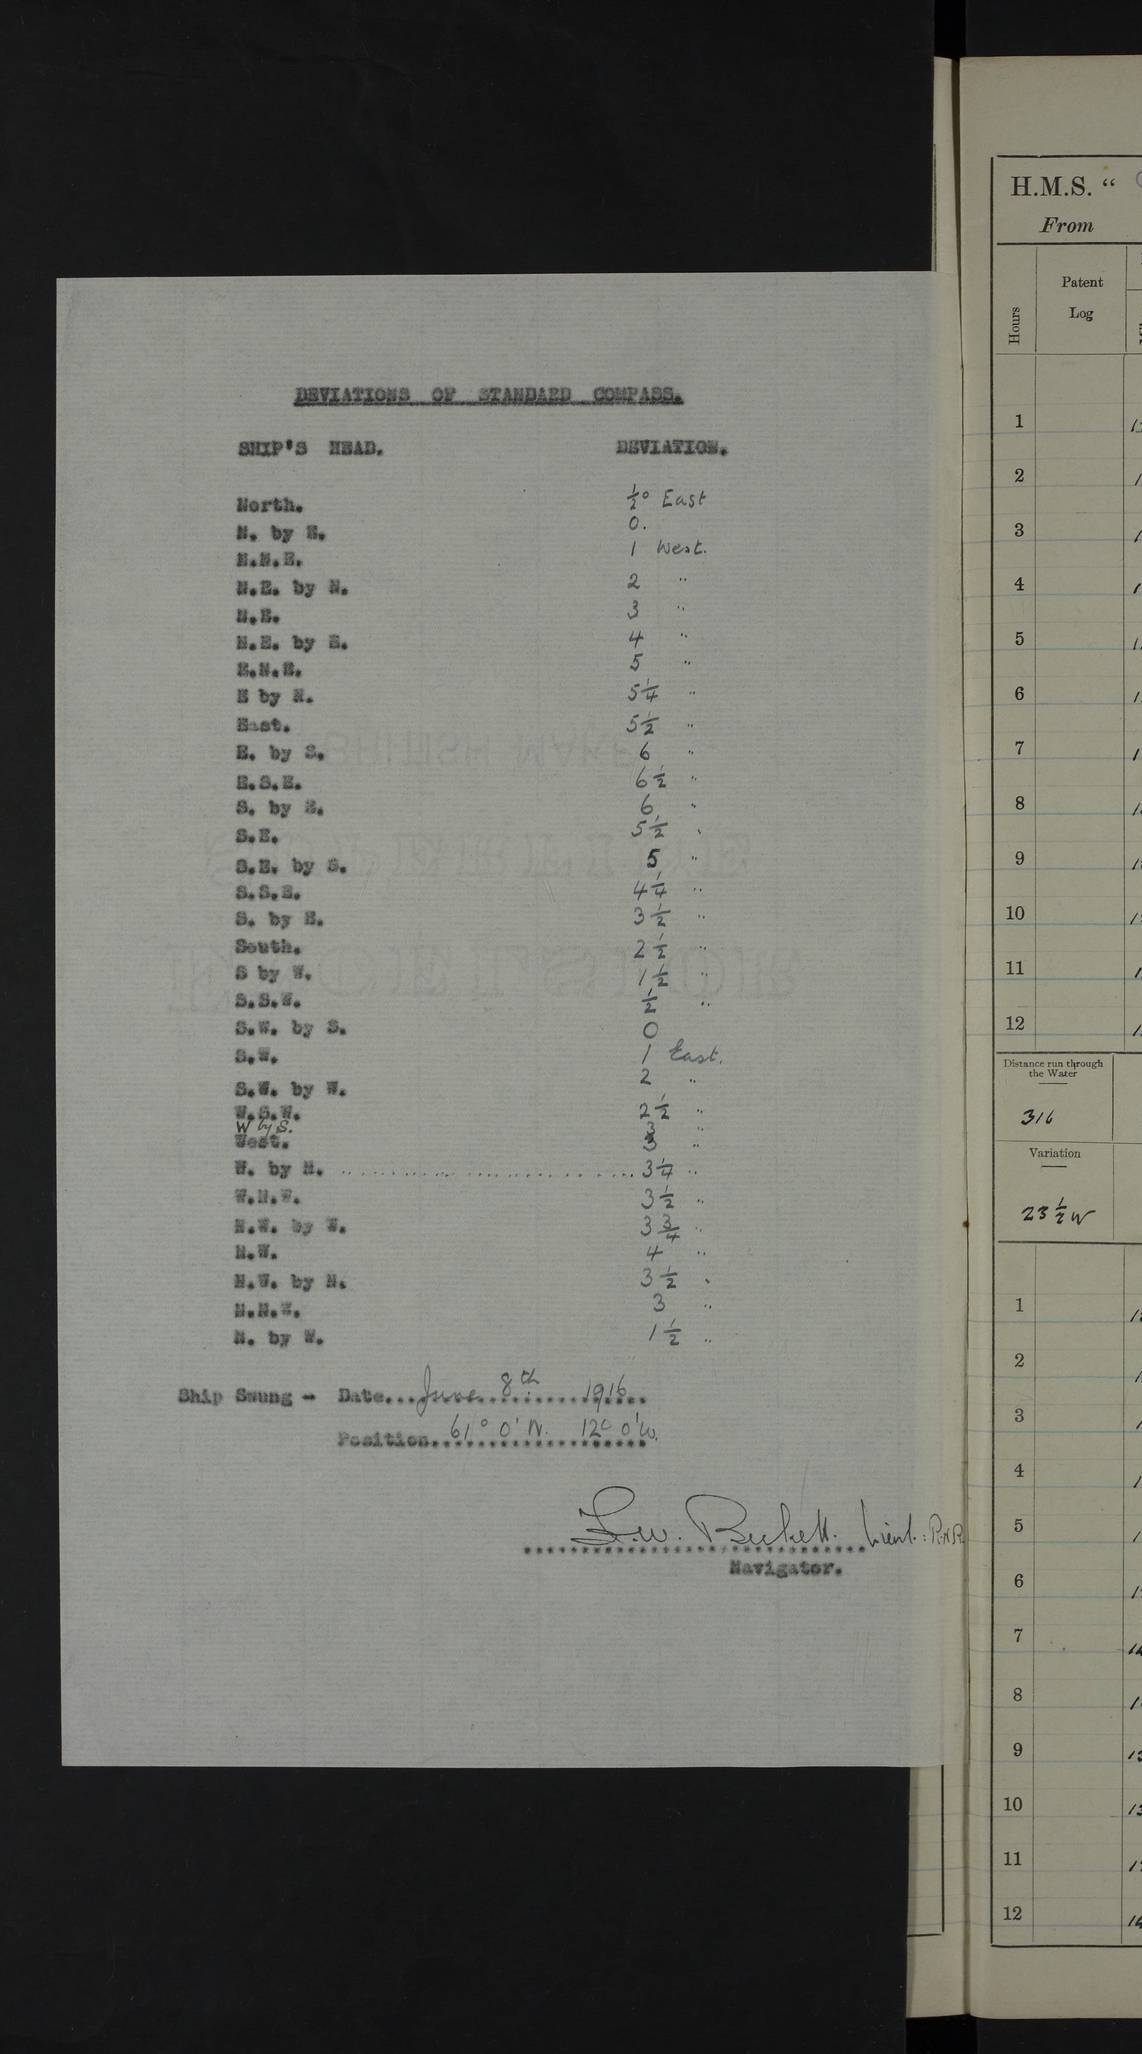 DEVIATIONS OF STANDARD COMPASS.
SHIP'S HEAD. DEVIATION.
North. ½° East
N. by E. 0.
N.N.E. 1 West.
N.E. by N. 2 "
N.E. 3 "
N.E. by E. 4 "
E.N.E. 5 "
E by N. 5¼ "
East. 5½ "
E. by S. 6 "
E.S.E. 6½ "
S. by E. 6 "
S.E. 5½ "
S.E. by S. 5 "
S.S.E. 4¼ "
S. by E. 3½ "
South. 2½ "
S by W. 1½ "
S.S.W. ½ "
S.W. by S. 0
S.W. 1 East.
S.W. by W. 2 "
W.S.W. 2½ "
W by S. 3 "
West. 3 "
W. by N. 3¼ "
W.N.W. 3½ "
N.W. by W. 3¾ "
N.W. 4 "
N.W. by N. 3½ "
N.N.W. 3 "
N. by W. 1½ "
Ship Swung - Date...June 8th 1916
Position. 61° 0' N. 12° 0' W.
L.W. Beckett. Lieut: R.N.R.
Navigator.
H.M.S. "
From
Hours
Patent
Log
1
2
3
4
5
6
7
8
9
10
11
12
Distance run through
the Water
316
Variation
23½ W
1
2
3
4
5
6
7
8
9
10
11
12